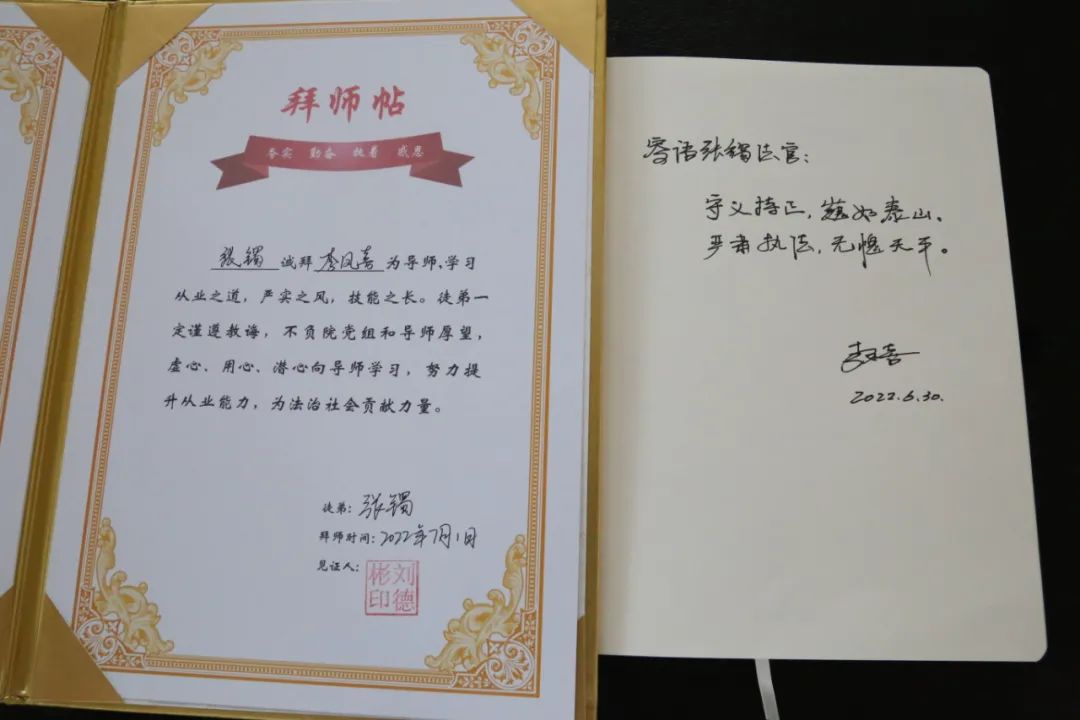 拜师帖
实 勤奋 执着 感恩
张 诚拜 李凤喜 为导师,学习
从业之道，严实之风，技能之长。徒弟一
定谨遵教诲，不负院党组和导师厚望，
虚心、用心、潜心向导师学习，努力提
升从业能力，为法治社会贡献力量。
徒弟：张
拜师时间：2022年7月1日
见证人：
刘德
彬印
寄语张法官：
守义持正，如泰山。
严肃执法，无愧天平。
李凤喜
2022.6.30.